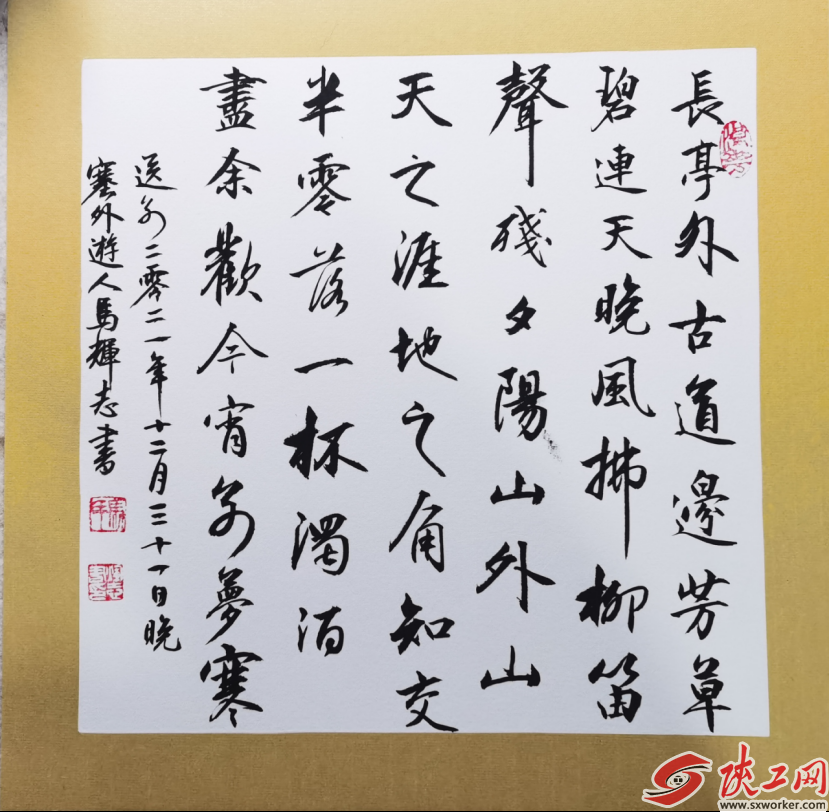 長亭外古道邊芳草
碧連天晚風拂柳笛
聲殘夕陽山外山
天之涯地之角知交
半零落一杯濁酒
盡余歡今宵别夢寒
送别二零二一年十二月三十一日晚
塞外遊人馬輝志書
陕工网
www.sxworker.com